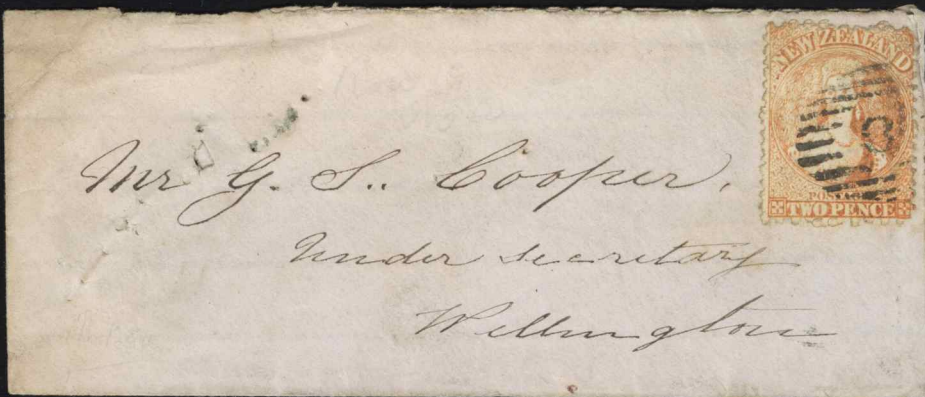 NEW ZEALAND
POSTAGE
TWO PENCE
Mr G. S.. Cooper.
Under Secretary
Wellington